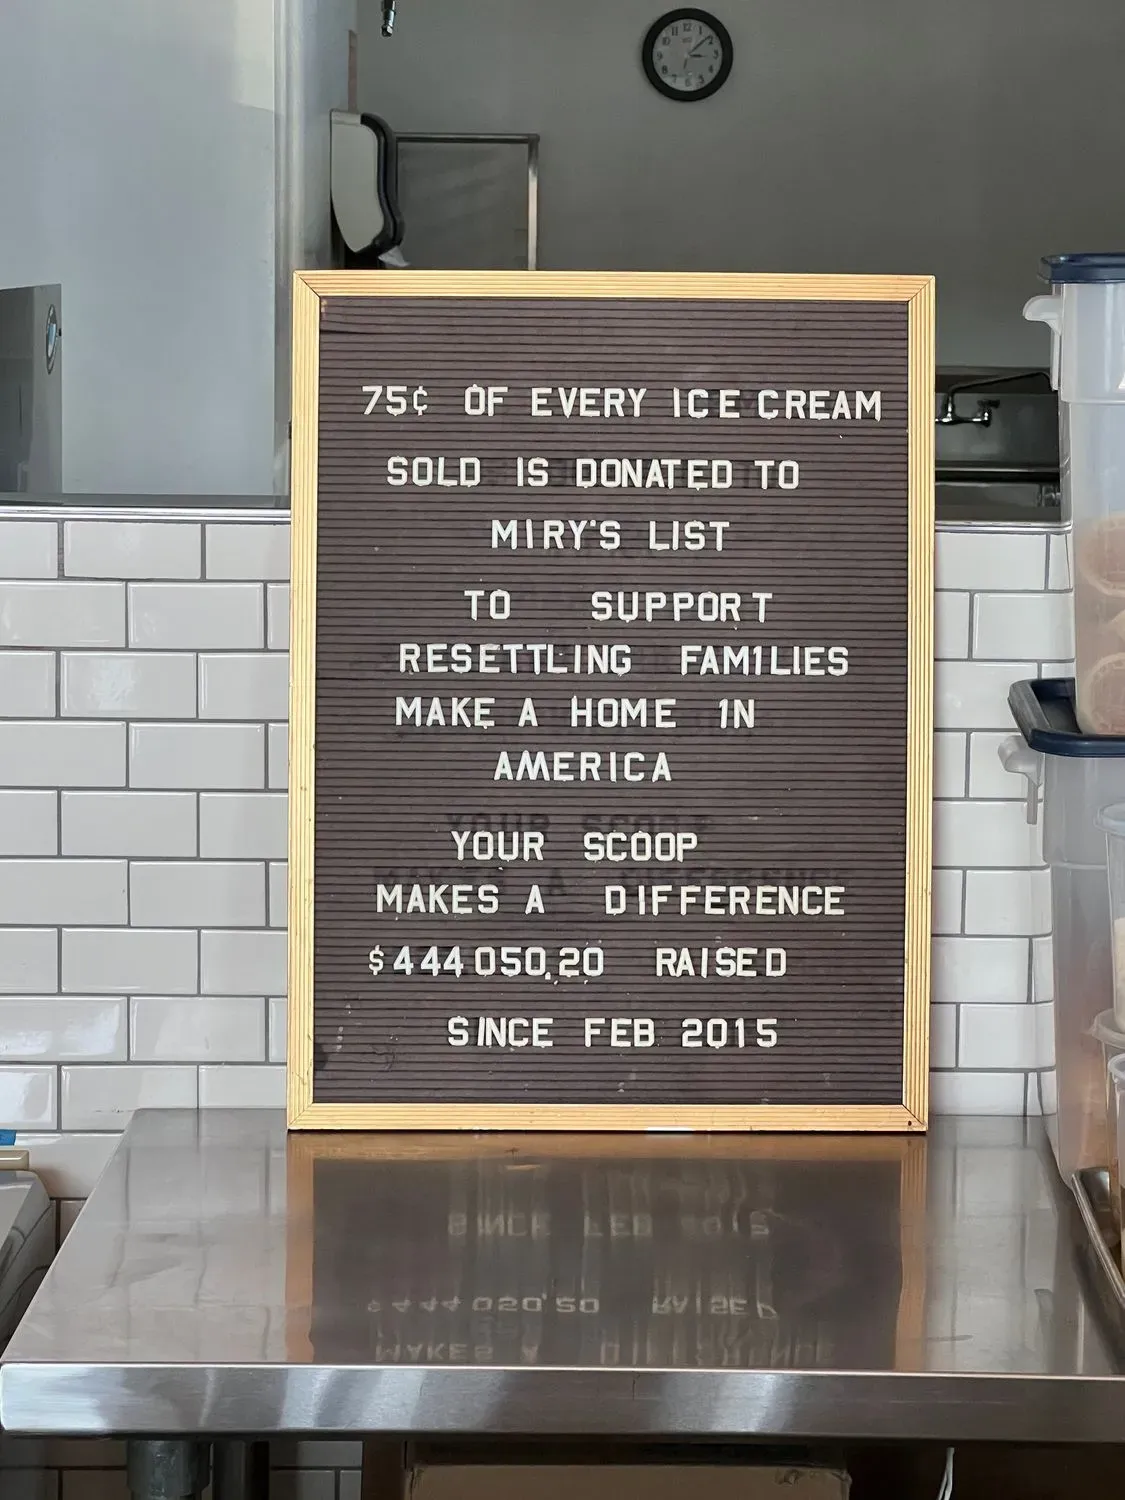 75¢ OF EVERY ICE CREAM
SOLD IS DONATED TO
MIRY'S LIST
TO SUPPORT
RESETTLING FAM1LIES
MAKE A HOME 1N
AMERICA
YOUR SCOOP
MAKES A DIFFERENCE
$444050,20 RAISED
SINCE FEB 2015